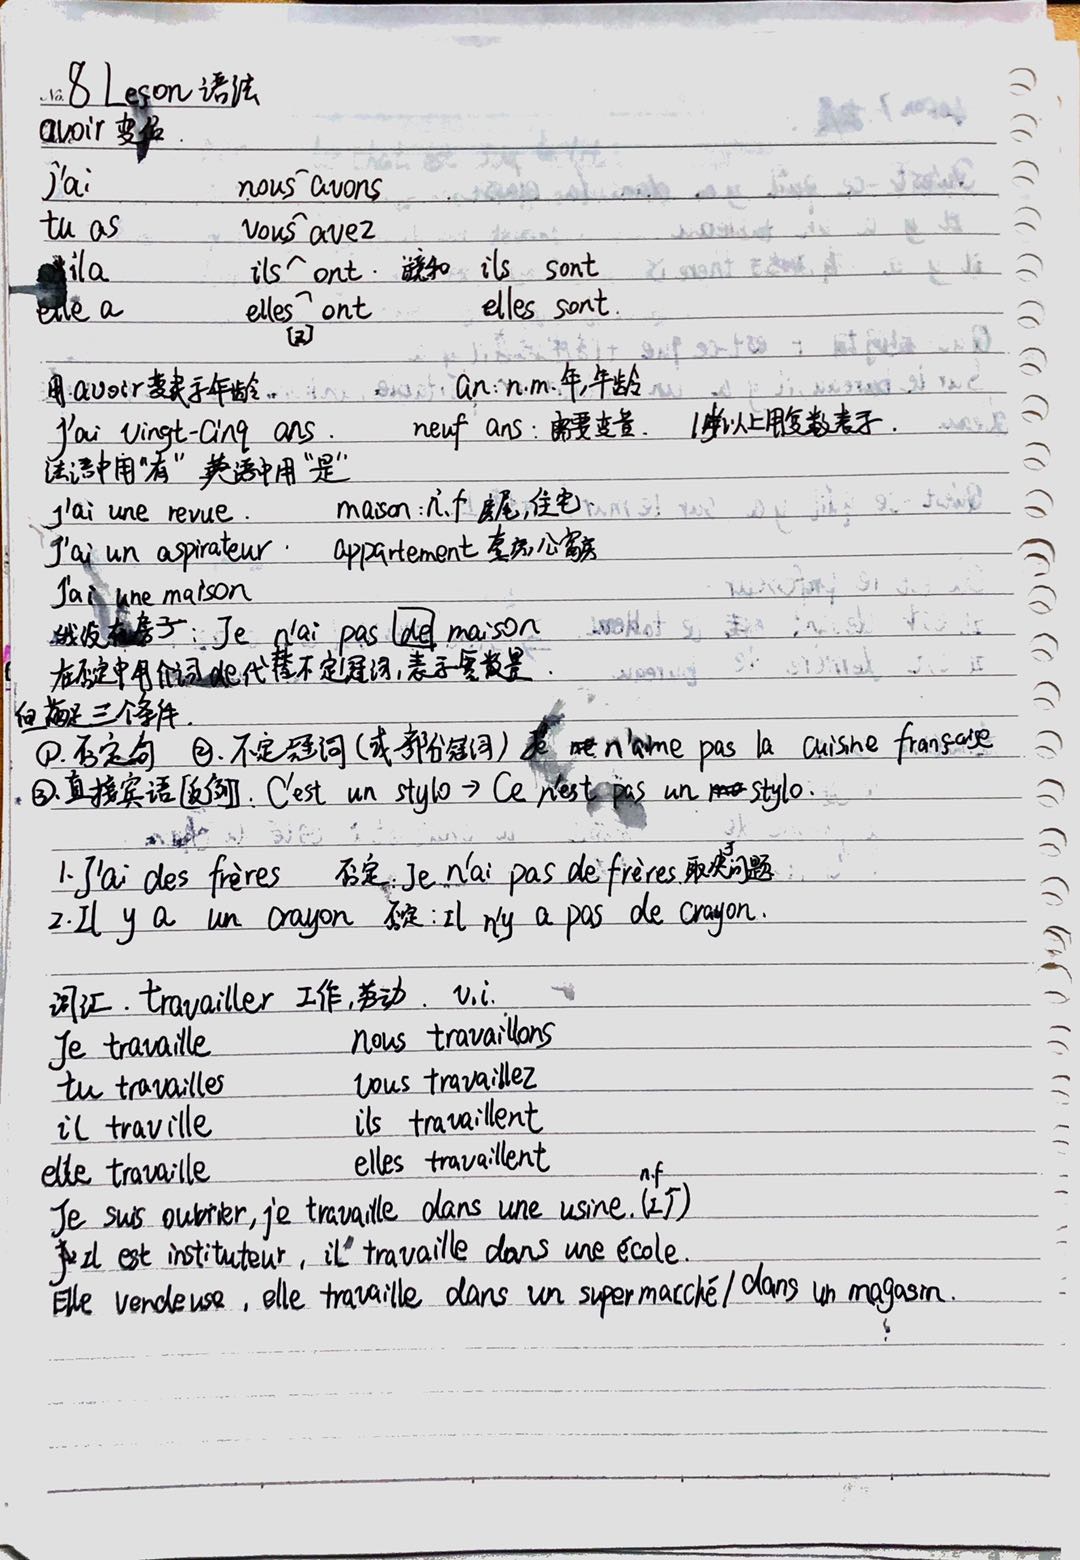 No. 8 Leson 语法
avoir 变位.
j'ai nous avons
tu as vous avez
il a ils ont. ils sont
elle a elles ont elles sont.
[z]
用avoir表示年龄.. an: n.m. 年,年龄
J'ai vingt-cinq ans. neuf ans: 需要变音. 1岁以上用复数表示.
法语中用"有" 英语中用"是"
J'ai une revue. maison: n.f 房屋,住宅.
J'ai un aspirateur. appartement 套房,公寓房
J'ai une maison
我没有房子: Je n'ai pas de maison
在否定中用介词de代替不定冠词,表示零数量.
但满足三个条件.
①.否定句 ②.不定冠词(或部分冠词) Je n'aime pas la cuisine française
③.直接宾语[反例]: C'est un stylo → Ce n'est pas un stylo.
1. J'ai des frères 否定. Je n'ai pas de frères. 取决于问题
2. Il y a un crayon 否定: Il n'y a pas de crayon.
词汇. travailler 工作,劳动. v.i.
Je travaille nous travaillons
tu travailles vous travaillez
il traville ils travaillent
elle travaille elles travaillent
n.f
Je suis oubrier, je travaille dans une usine. (工厂)
Il est instituteur, il travaille dans une école.
Elle vendeuse, elle travaille dans un supermarché/dans un magasin.